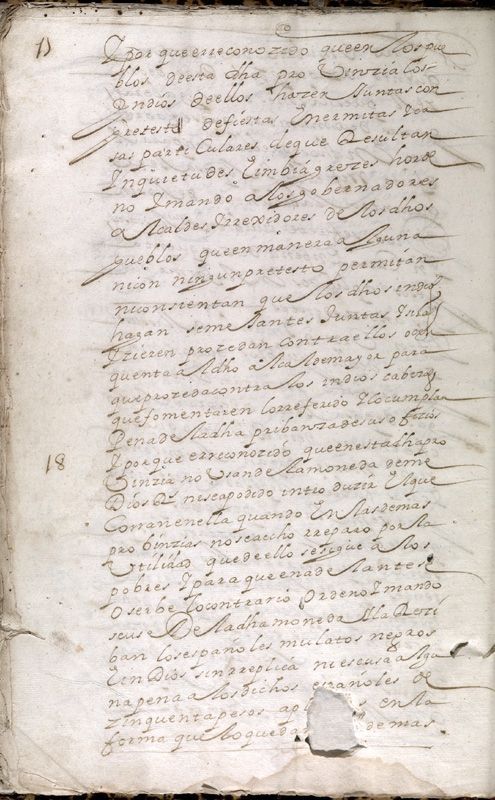 17
Y por que e rreconozido que en los pue
blos de esta dha pro Uinzia los
Yndios de ellos hazen Juntas con
pretesto de fiestas Y hermitas Y ca
sas parti Culares de que Resultan
Inquietudes Y embriagezes hor de
no Y mando a los gobernadores
a Alcaldes Y rrexidores de los dhos
pueblos que en manera alguna
ni con ningun pretesto permitan
ni consientan que los dhos indios
hagan seme Jantes Juntas Y si la
Yzieren prozedan contra ellos den
quenta al dho alcalde mayor para
que prozeda contra los indios cabezas
que fomentaren lo rreferido Y lo cumplan
Pena de la dha pribanza de sus ofizios
18
Y por que e rreconozido que en esta dha pro
Uinzia no Usan de la moneda de me
Dios Rs ni se a podido intro duzir El que
Corra en ella quando En las demas
pro binzias no se a echo rreparo por la
Utilidad que de ello se sigue a los
pobres Y para que en adelante se
Oserbe lo contrario Ordeno Y mando
se use De la dha moneda Y la Reci
ban los españoles mulatos negros
Y en Dios sin rreplica ni escusa algu
na pena a los dichos españoles de
zinquenta pesos ap en la
forma que lo queda demas